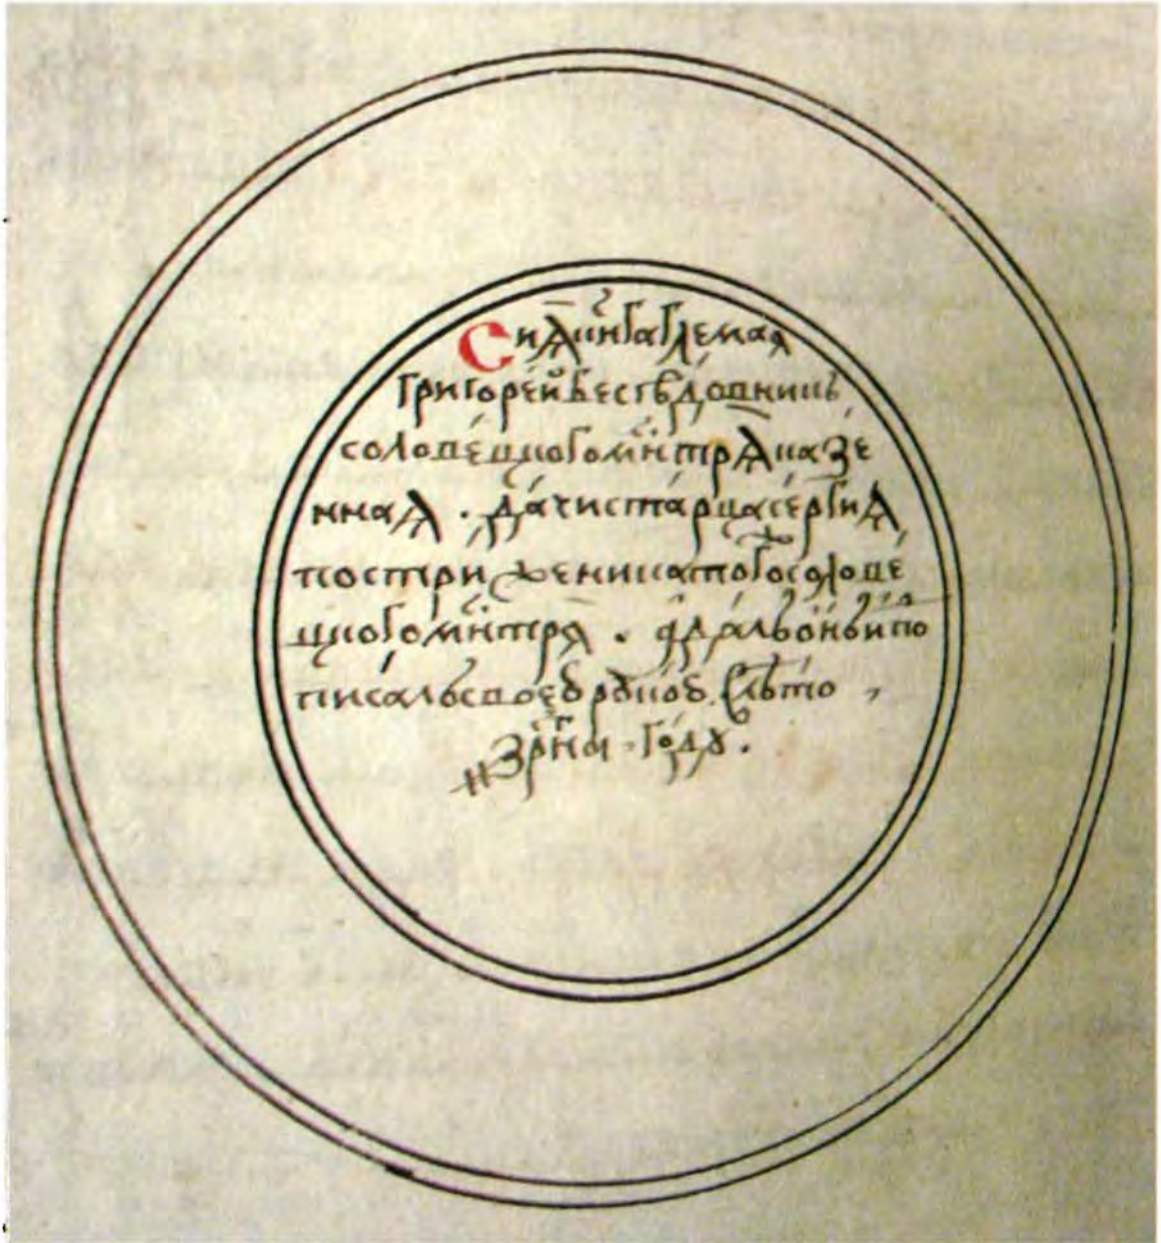 Сиꙗ книга гл҃емаꙗ
григорей беседовникъ
соловецкого мн҃трꙗ казе
ннаꙗ . дачи старца сергиꙗ
постриженика того соловe
цкого мн҃трѧ .
писалъ своею рꙋкою . лѣто
году .